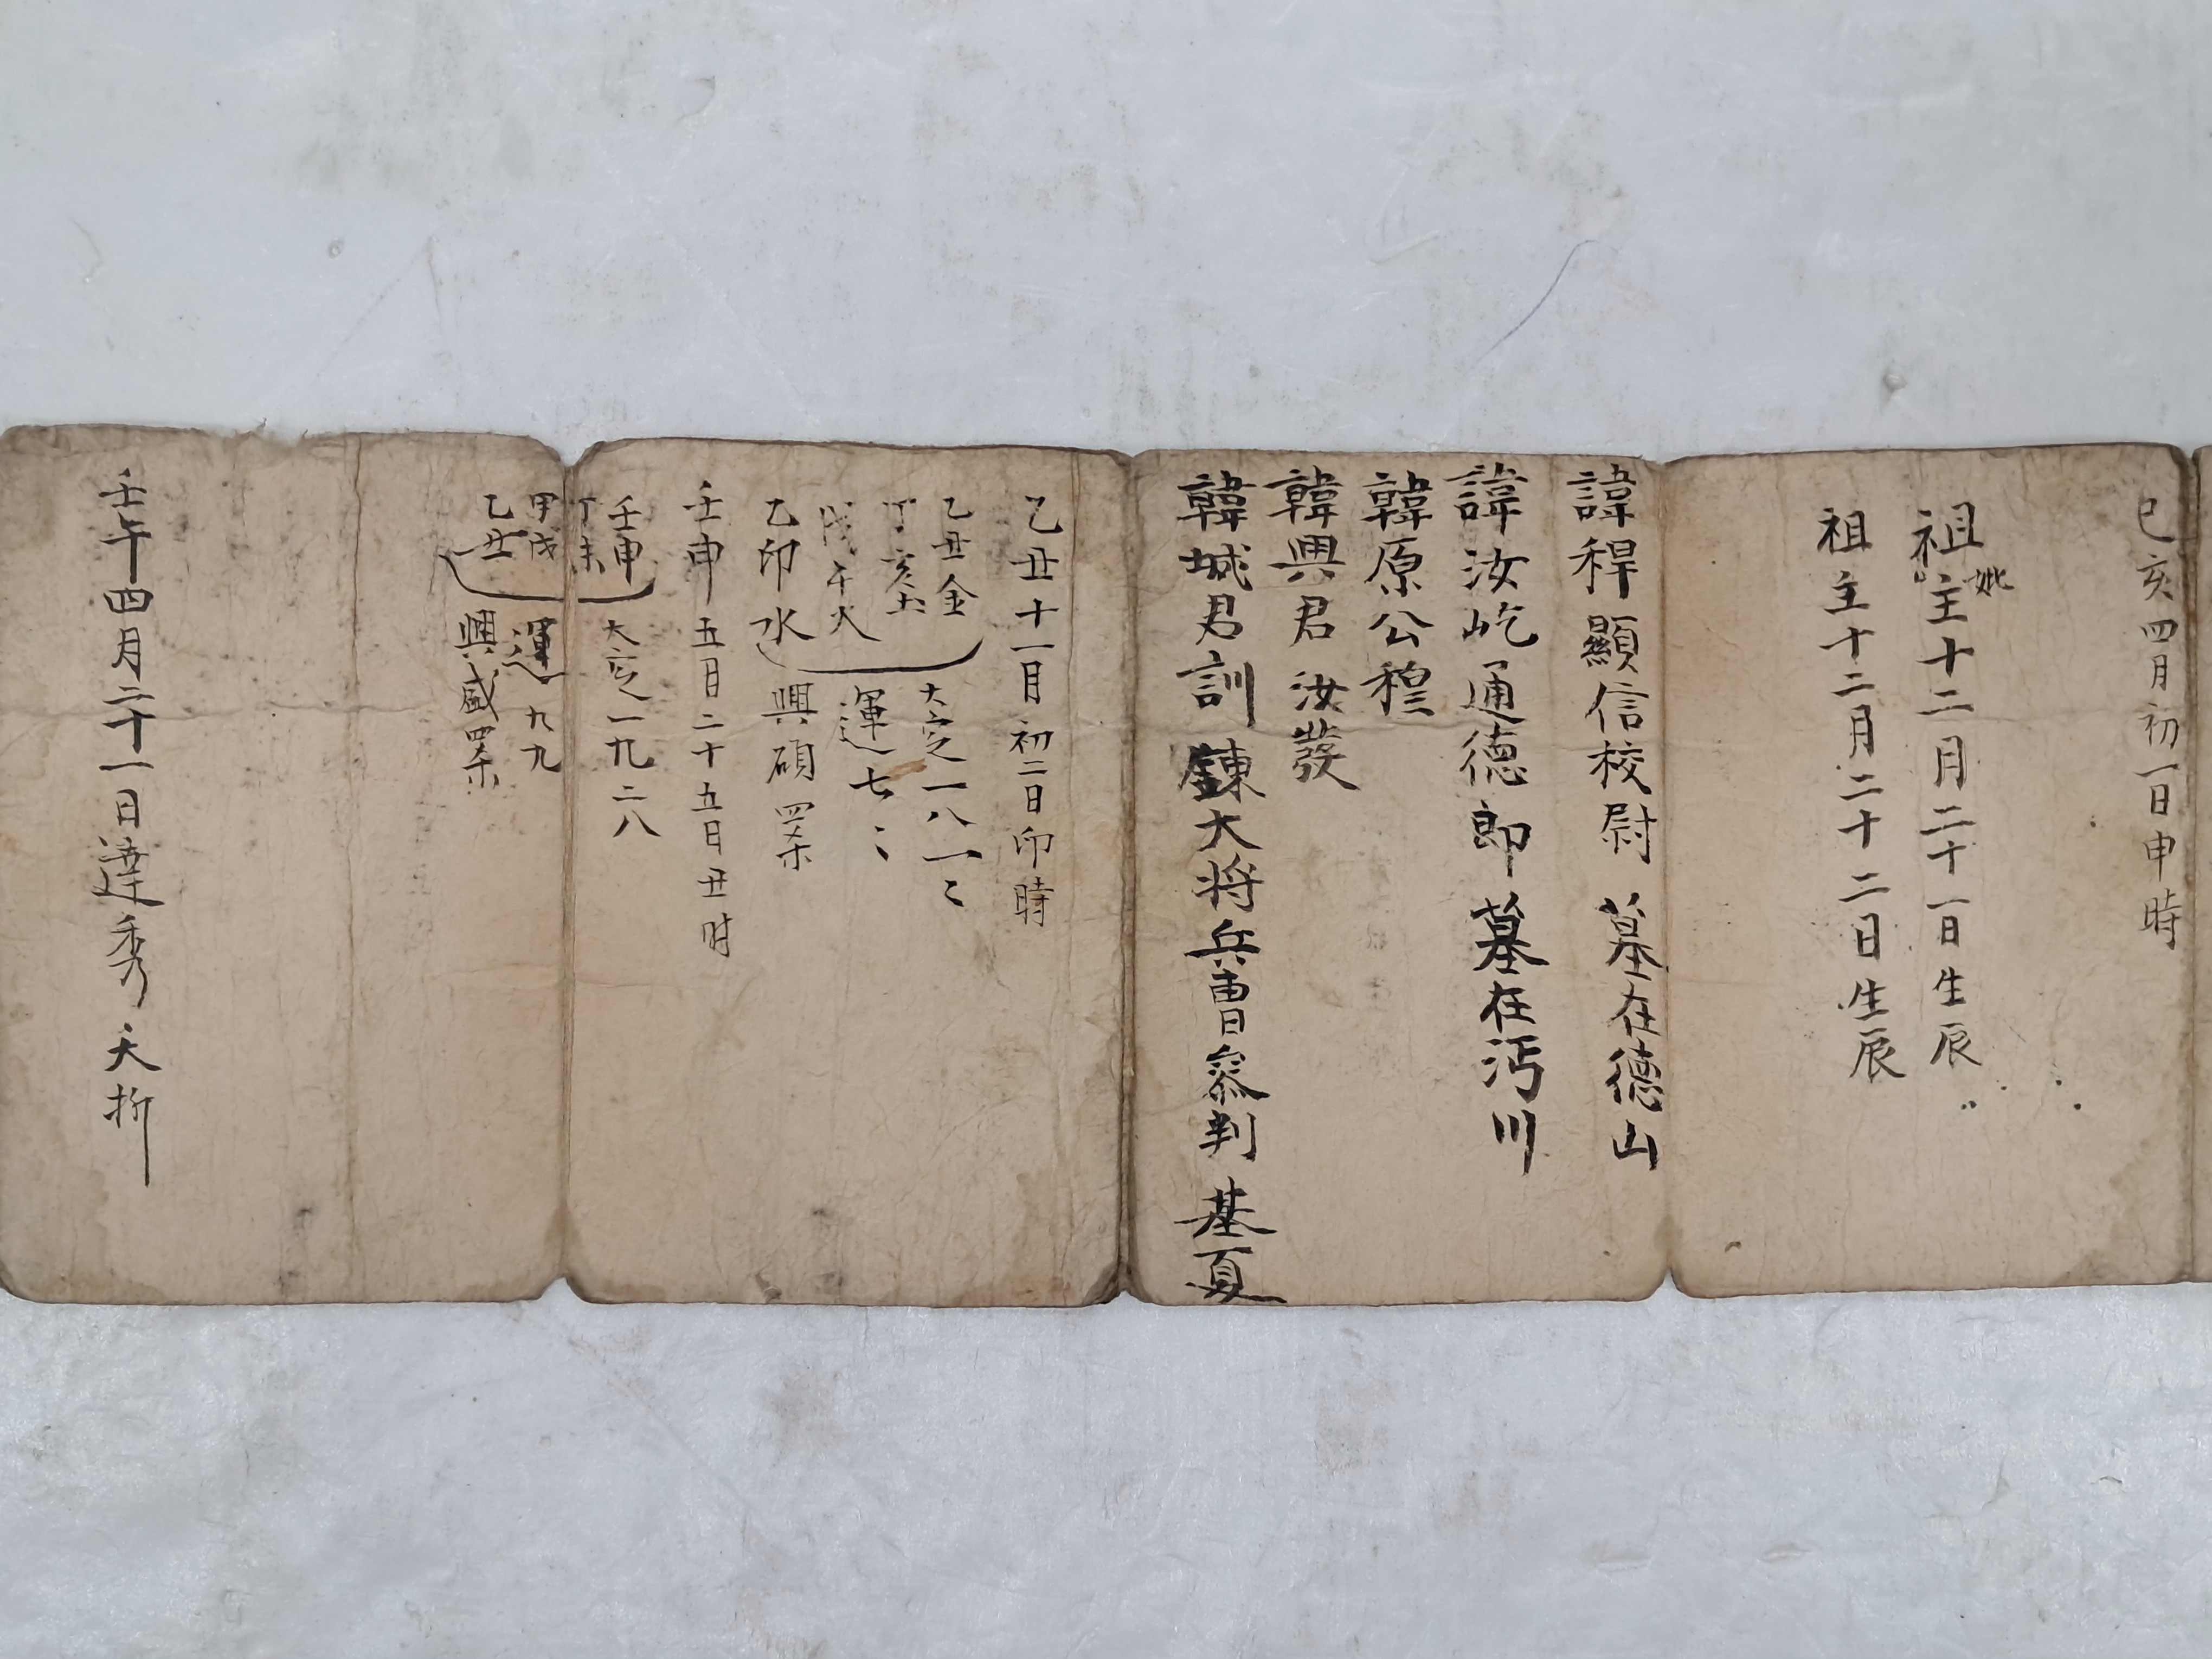 己亥四月初一日申時
祖妣主十二月二十一日生辰
祖主十二月二十二日生辰
諱稈顯信校尉 墓在德山
諱汝屹通德郎 墓在沔川
韓原公穆
韓興君汝發
韓城君訓鍊大將兵曹參判 基夏
乙丑十一月初二日卯時
乙丑金
丁亥土
戊午火
乙卯水
大定一八一〻
運七〻
興碩四柱
壬申五月二十五日丑时
壬申
丁未
甲戌
乙丑
大定一九二八
運九九
興盛四柱
壬午四月二十一日達秀夭折